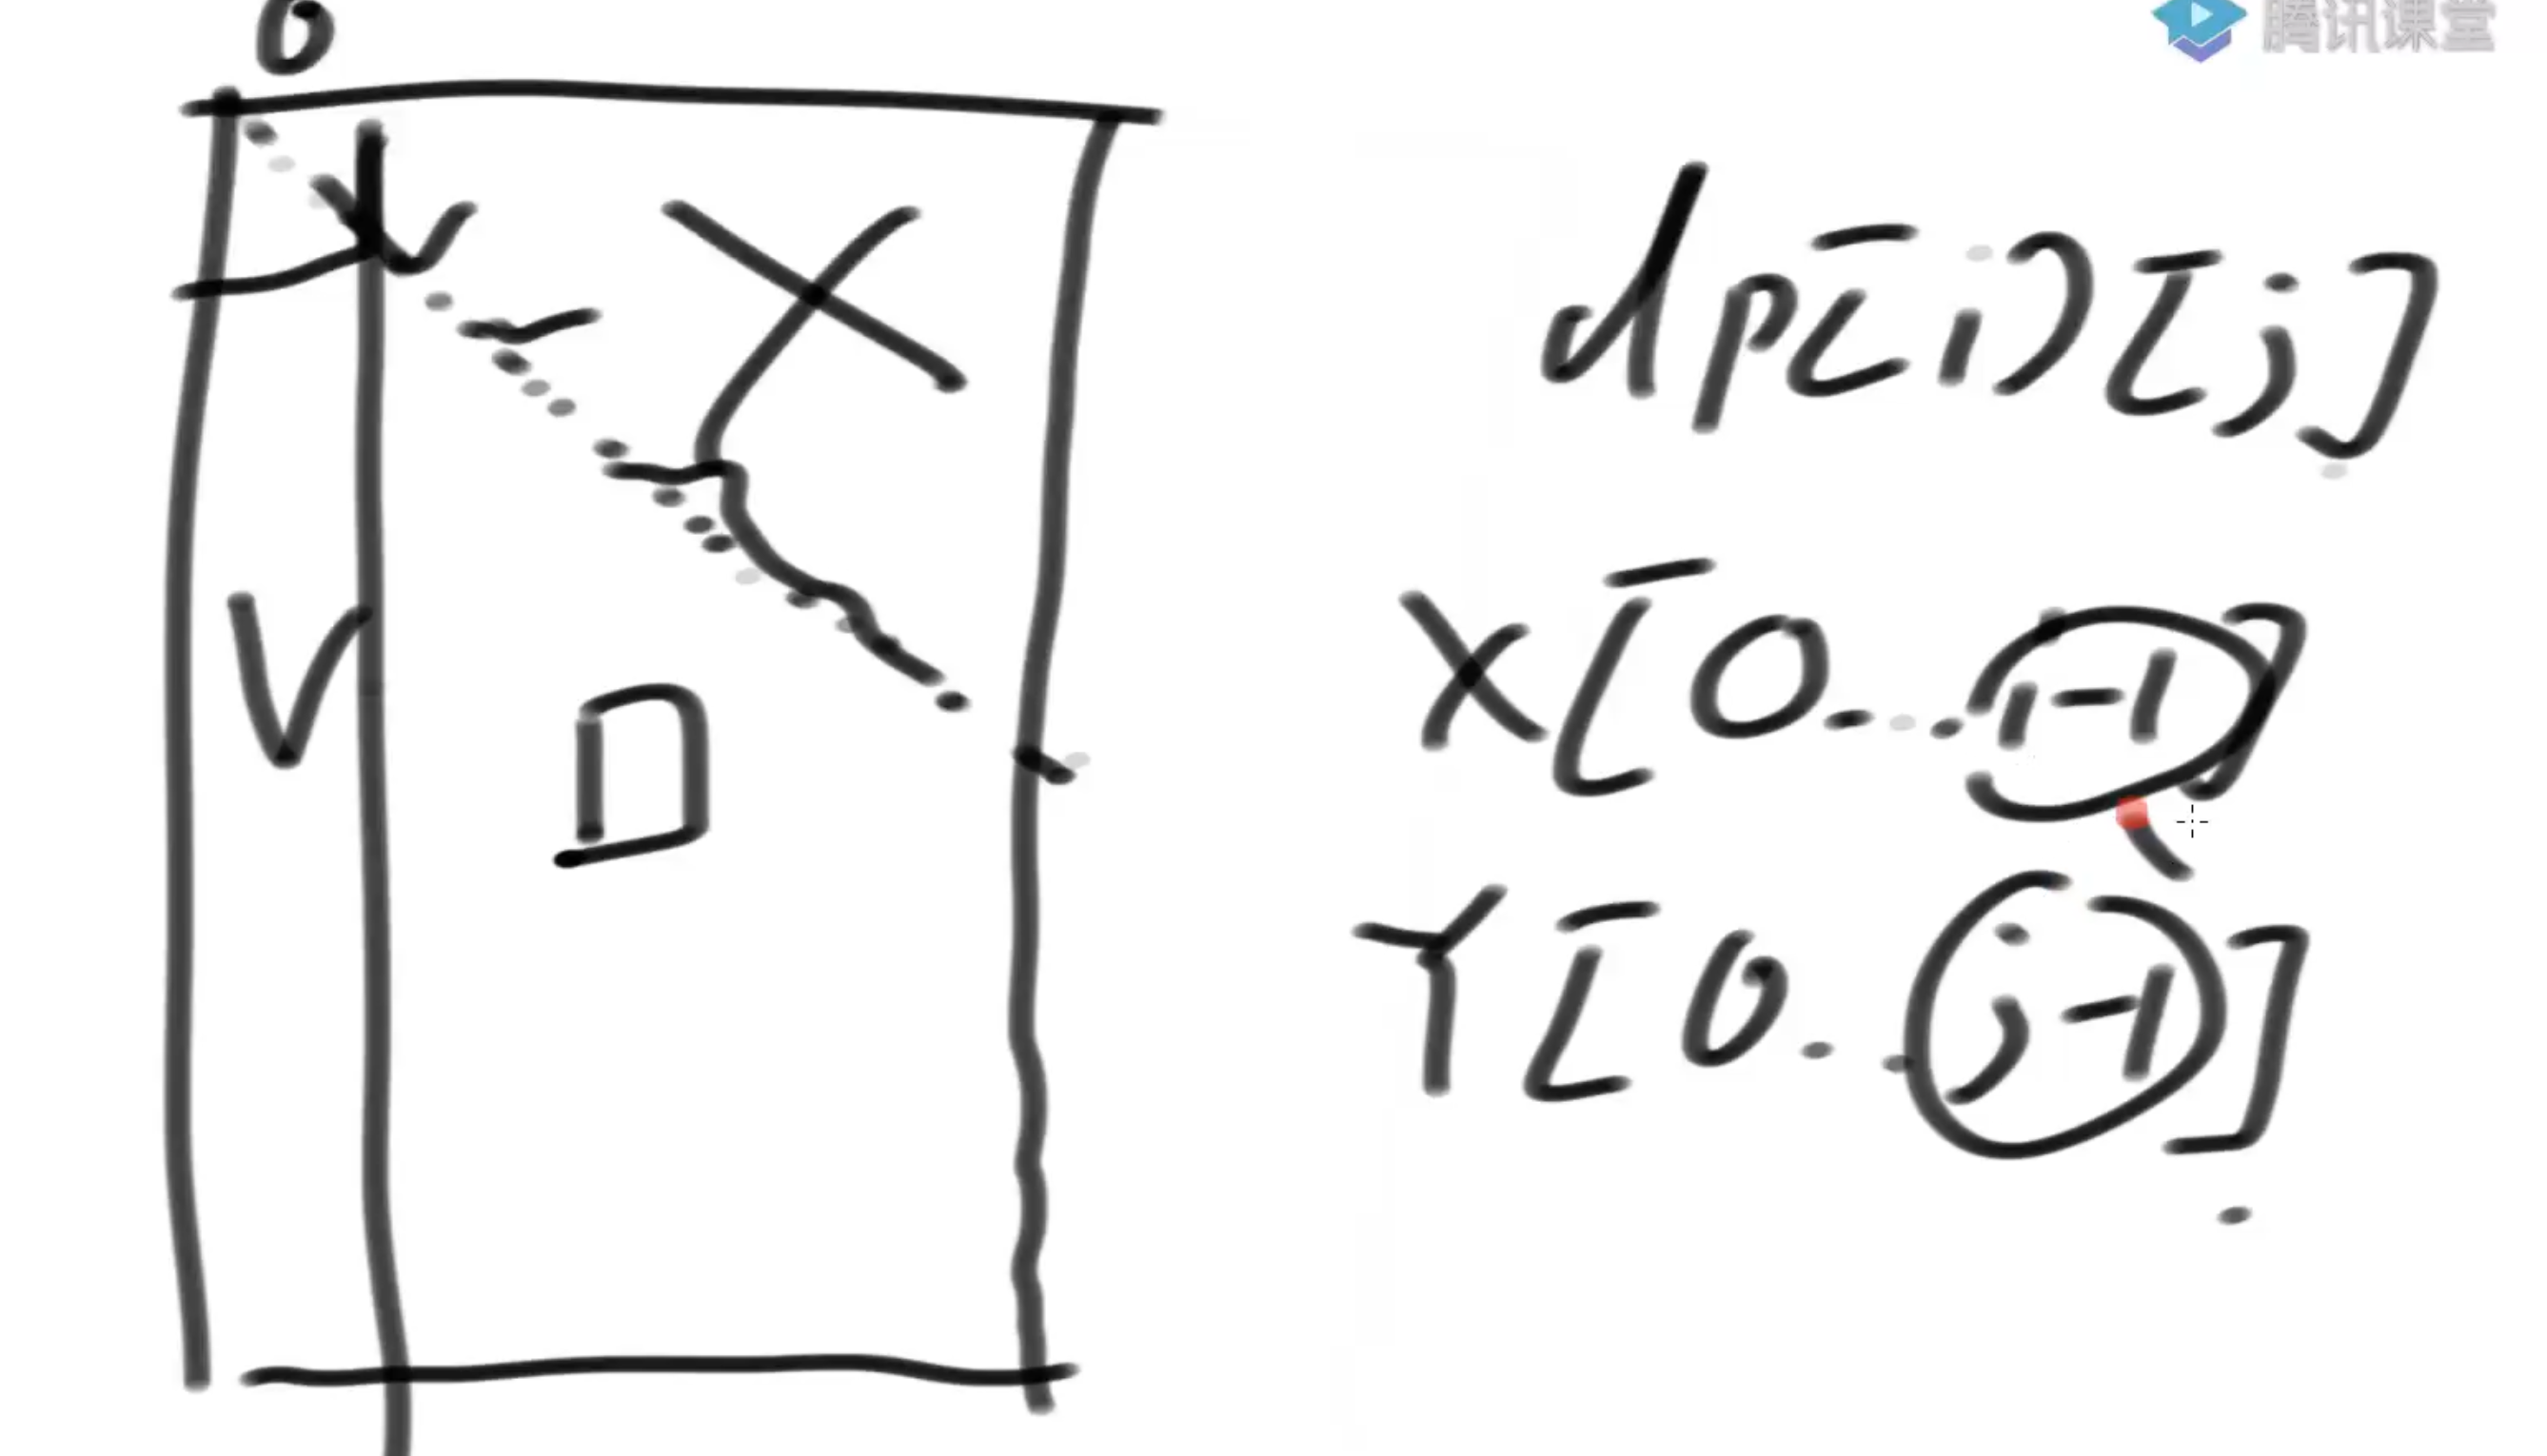 腾讯课堂
0
dp[i][j]
X[0...i-1]
Y[0..j-1]